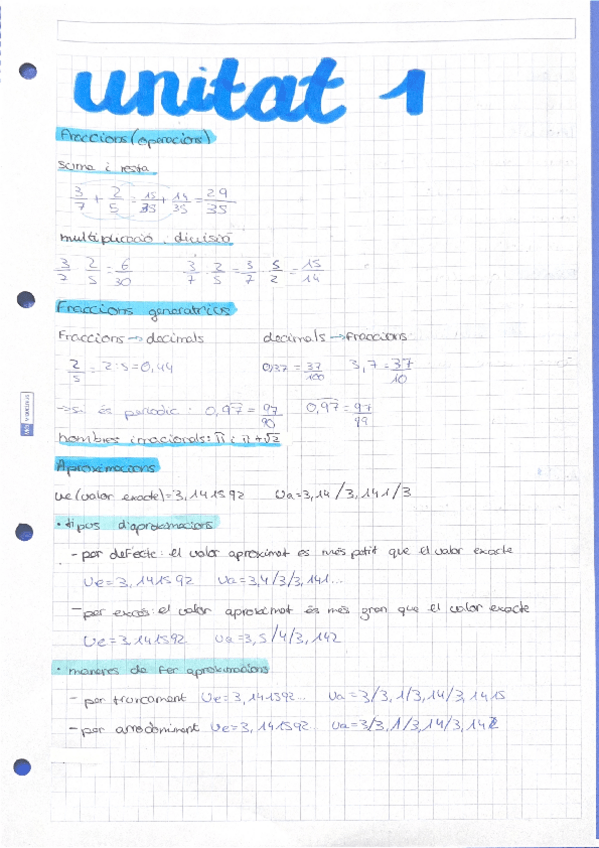 unitat 1
Fraccions (operacions)
suma i resta
3/7 + 2/5 = 15/35 + 14/35 = 29/35
multiplicació . divisió
3/2 · 2/5 = 6/30   3/7 : 2/5 = 3/7 · 5/2 = 15/14
Fraccions generatrius
Fraccions → decimals   decimals → fraccions
2/5 = 2:5 = 0,44   0,37 = 37/100   3,7 = 37/10
→ si és periòdic: 0,97 = 97/90   0,97 = 97/99
nombres irracionals: π i π + √2
Aproximacions
Ve (valor exacte) = 3,141592   Va = 3,14 / 3,141 / 3
· tipus d'aproximacions
- per defecte: el valor aproximat és més petit que el valor exacte
Ve = 3,141592   Va = 3,4/3/3,141...
- per excés: el valor aproximat és més gran que el valor exacte
Ve = 3,141592   Va = 3,5/4/3,142
· maneres de fer aproximacions
- per truncament Ve = 3,141592...   Va = 3/3,1/3,14/3,1415
- per arrodoniment Ve = 3,141592...   Va = 3/3,1/3,14/3,142